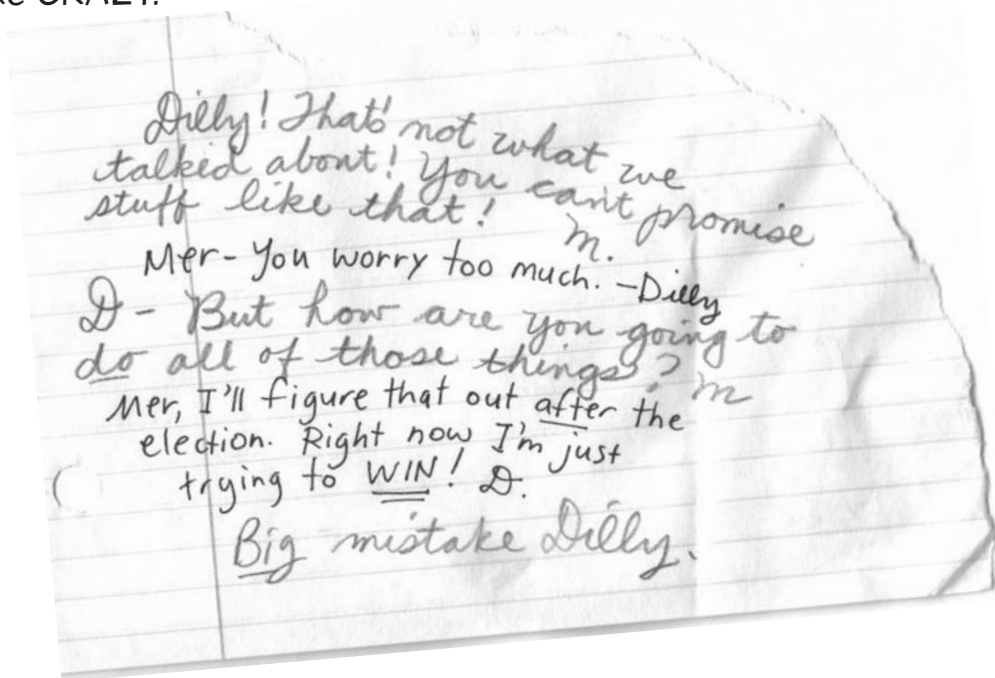 CRAZY.
Dilly! That's not what we
talked about! You can't promise
stuff like that! M.
Mer- You worry too much. -Dilly
D - But how are you going to
do all of those things? M
Mer, I'll figure that out after the
election. Right now I'm just
trying to WIN! D.
Big mistake Dilly.